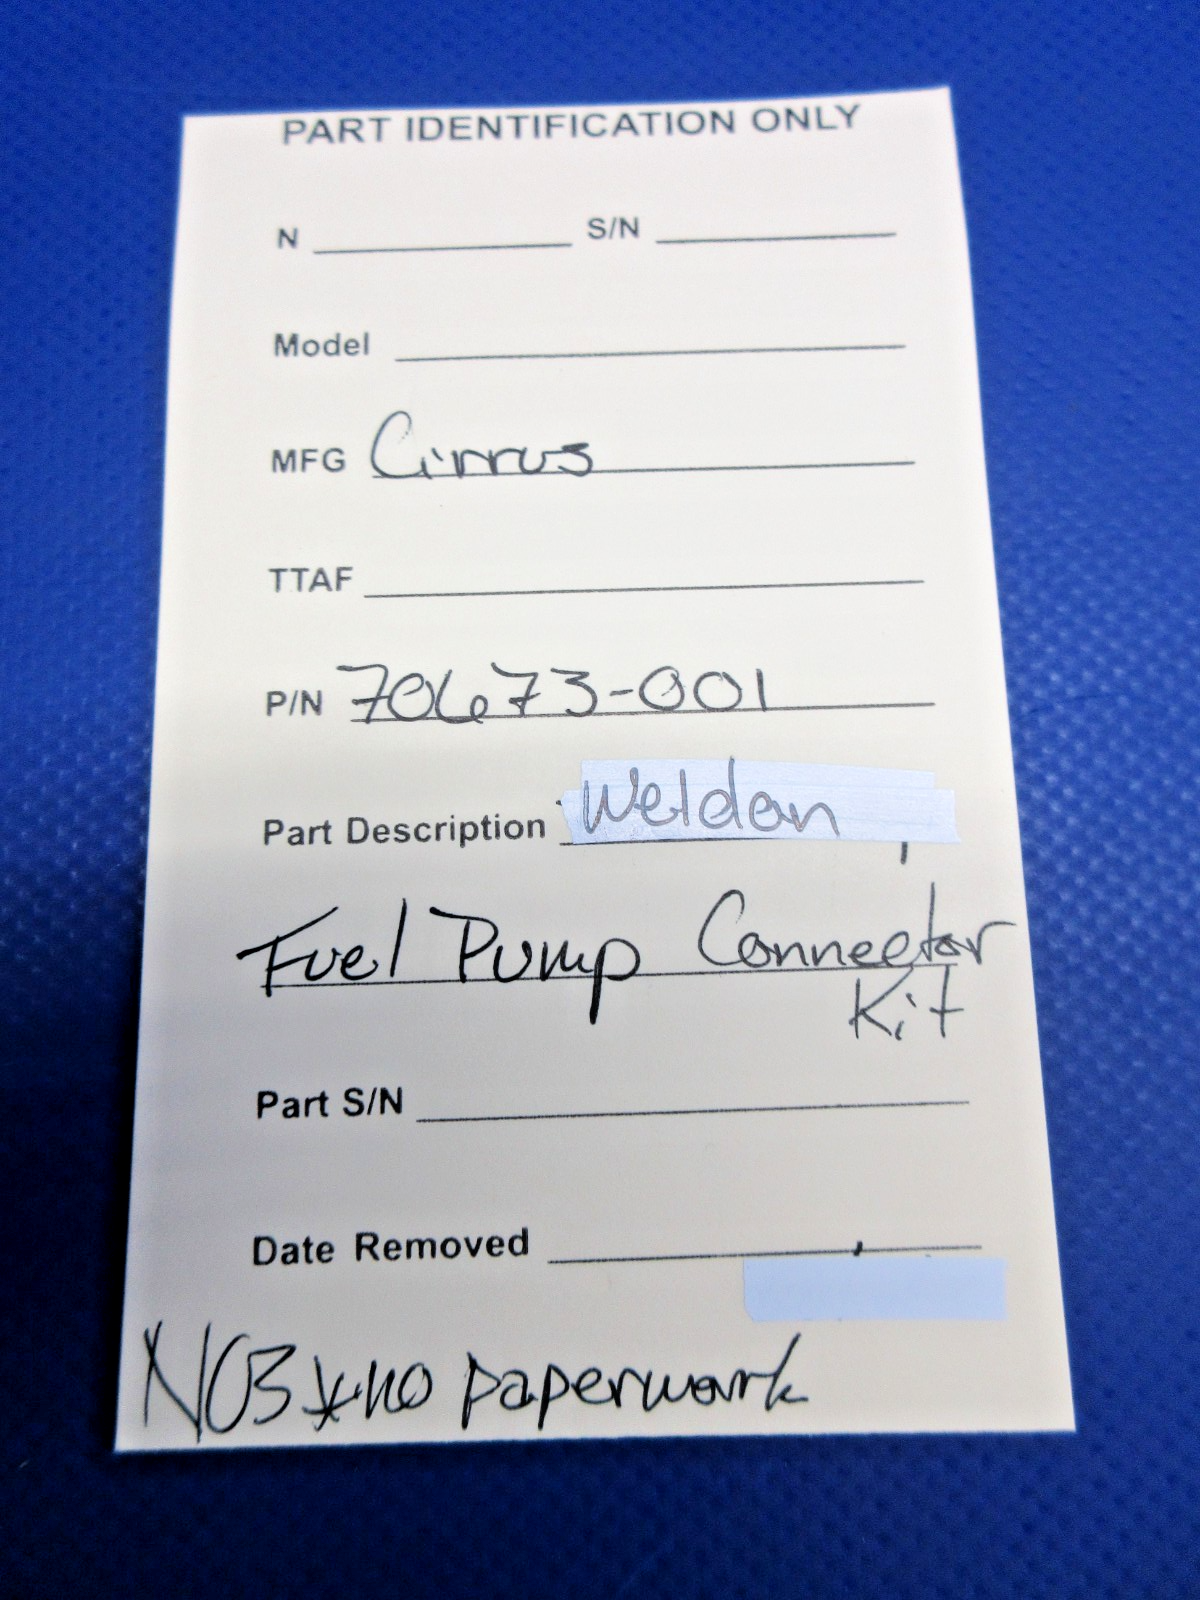 PART IDENTIFICATION ONLY
N S/N
Model
MFG Cirrus
TTAF
P/N 70673-001
Part Description Weldon
Fuel Pump Connector
Kit
Part S/N
Date Removed
NOS * no paperwork